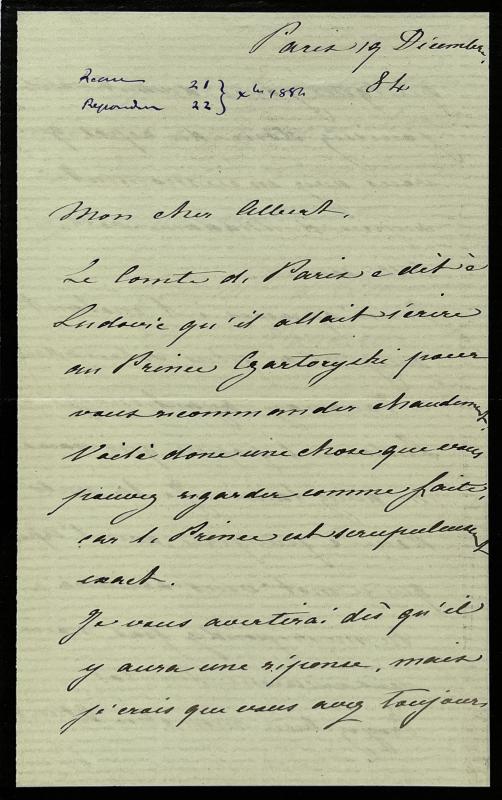 Paris 19 Décembre,
84
Reçu 21 } Xbre 1884
Répondu 22
Mon cher Albert,
Le Comte de Paris a dit à
Ludovic qu'il allait écrire
au Prince Czartoryski pour
vous recommander chaudement.
Voilà donc une chose que vous
pouvez regarder comme faite,
car le Prince est scrupuleusement
exact.
Je vous avertirai dès qu'il
y aura une réponse, mais
je crois que vous avez toujours